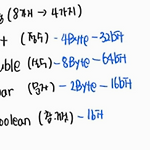 (8개 → 4가지)
(정수) - 4Byte - 32bit
uble (실수) - 8Byte - 64bit
ar (문자) - 2Byte - 16bit
oolean (참거짓) - 1bit